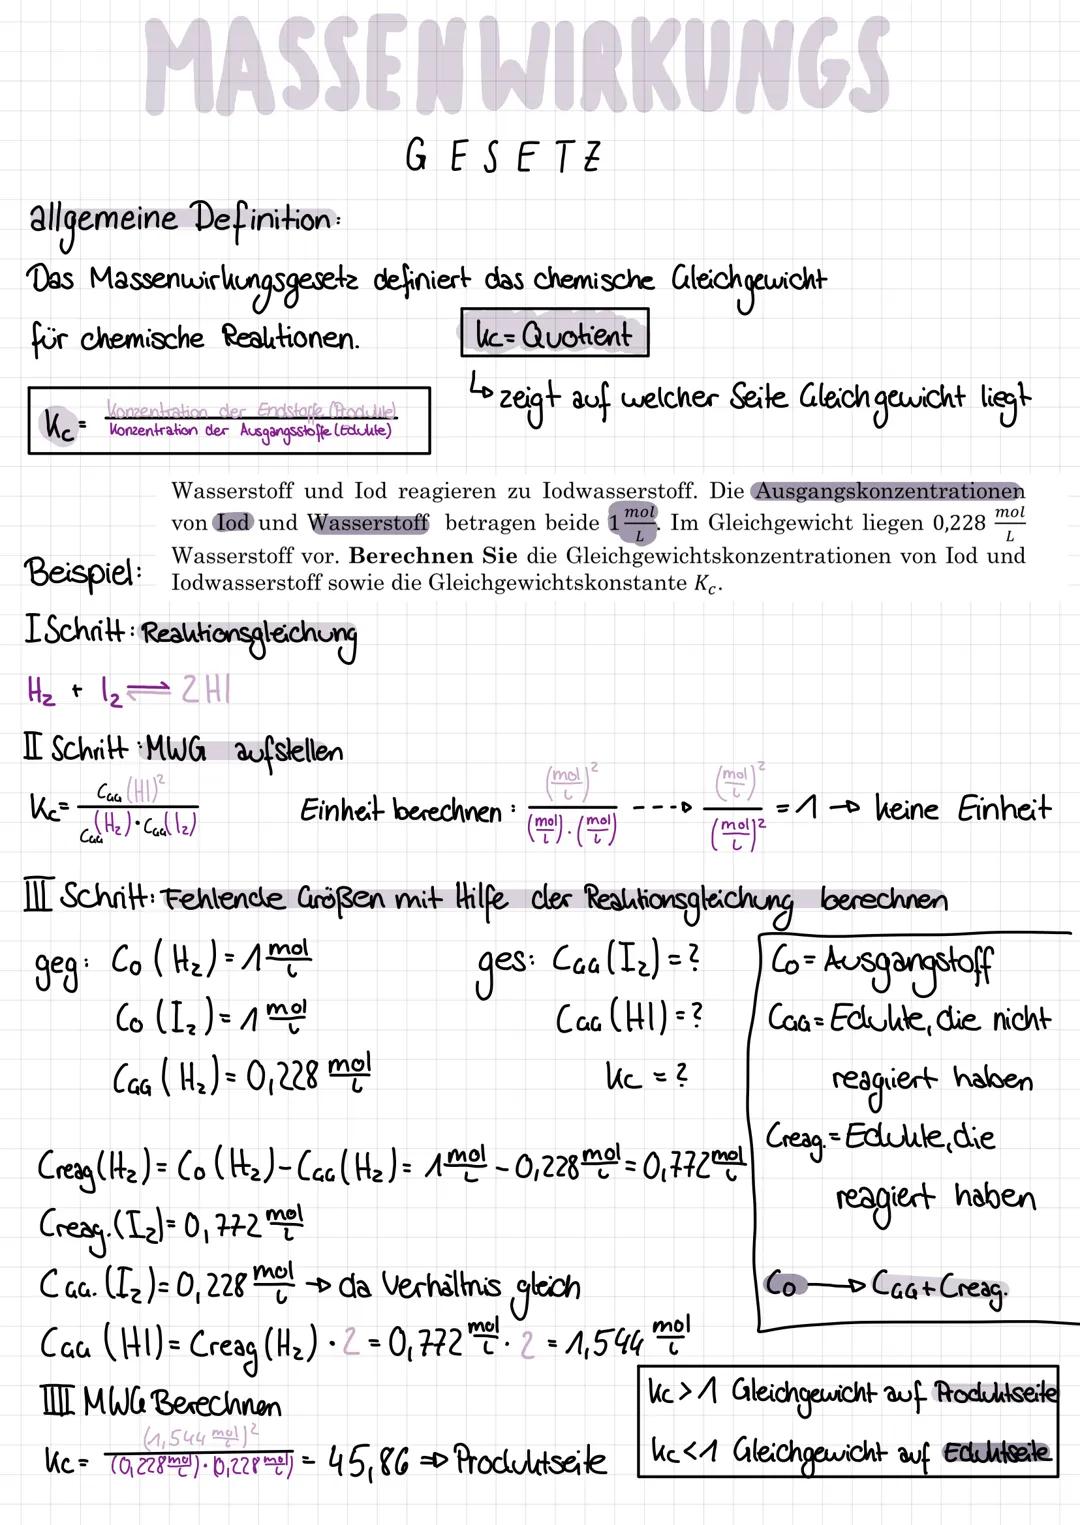 MASSENWIRKUNGS
GESETZ
allgemeine Definition:
Das Massenwirkungsgesetz definiert das chemische Gleichgewicht
für chemische Reaktionen.
Kc = Quotient
↳ zeigt auf welcher Seite Gleichgewicht liegt
Kc = Konzentration der Endstoffe (Produkte) / Konzentration der Ausgangsstoffe (Edukte)
Wasserstoff und Iod reagieren zu Iodwasserstoff. Die Ausgangskonzentrationen
von Iod und Wasserstoff betragen beide 1 mol/L. Im Gleichgewicht liegen 0,228 mol/L
Wasserstoff vor. Berechnen Sie die Gleichgewichtskonzentrationen von Iod und
Iodwasserstoff sowie die Gleichgewichtskonstante Kc.
Beispiel:
I Schritt: Reaktionsgleichung
H₂ + I₂ ⇌ 2HI
II Schritt: MWG aufstellen
Kc = CGG(HI)² / CGG(H₂) · CGG(I₂)
Einheit berechnen: (mol/L)² / (mol/L) · (mol/L) ---▷ (mol/L)² / (mol/L)² = 1 → keine Einheit
III Schritt: Fehlende Größen mit Hilfe der Reaktionsgleichung berechnen
geg: C₀ (H₂) = 1 mol/L
C₀ (I₂) = 1 mol/L
CGG (H₂) = 0,228 mol/L
ges: CGG (I₂) = ?
CGG (HI) = ?
Kc = ?
C₀ = Ausgangstoff
CGG = Edukte, die nicht
reagiert haben
Creag. = Edukte, die
reagiert haben
C₀ → CGG + Creag.
Creag (H₂) = C₀ (H₂) - CGG (H₂) = 1 mol/L - 0,228 mol/L = 0,772 mol/L
Creag. (I₂) = 0,772 mol/L
CGG. (I₂) = 0,228 mol/L → da Verhältnis gleich
CGG (HI) = Creag (H₂) · 2 = 0,772 mol/L · 2 = 1,544 mol/L
IIII MWG Berechnen
Kc = (1,544 mol/L)² / (0,228 mol/L) · (0,228 mol/L) = 45,86 ⇒ Produktseite
Kc > 1 Gleichgewicht auf Produktseite
Kc < 1 Gleichgewicht auf Eduktseite